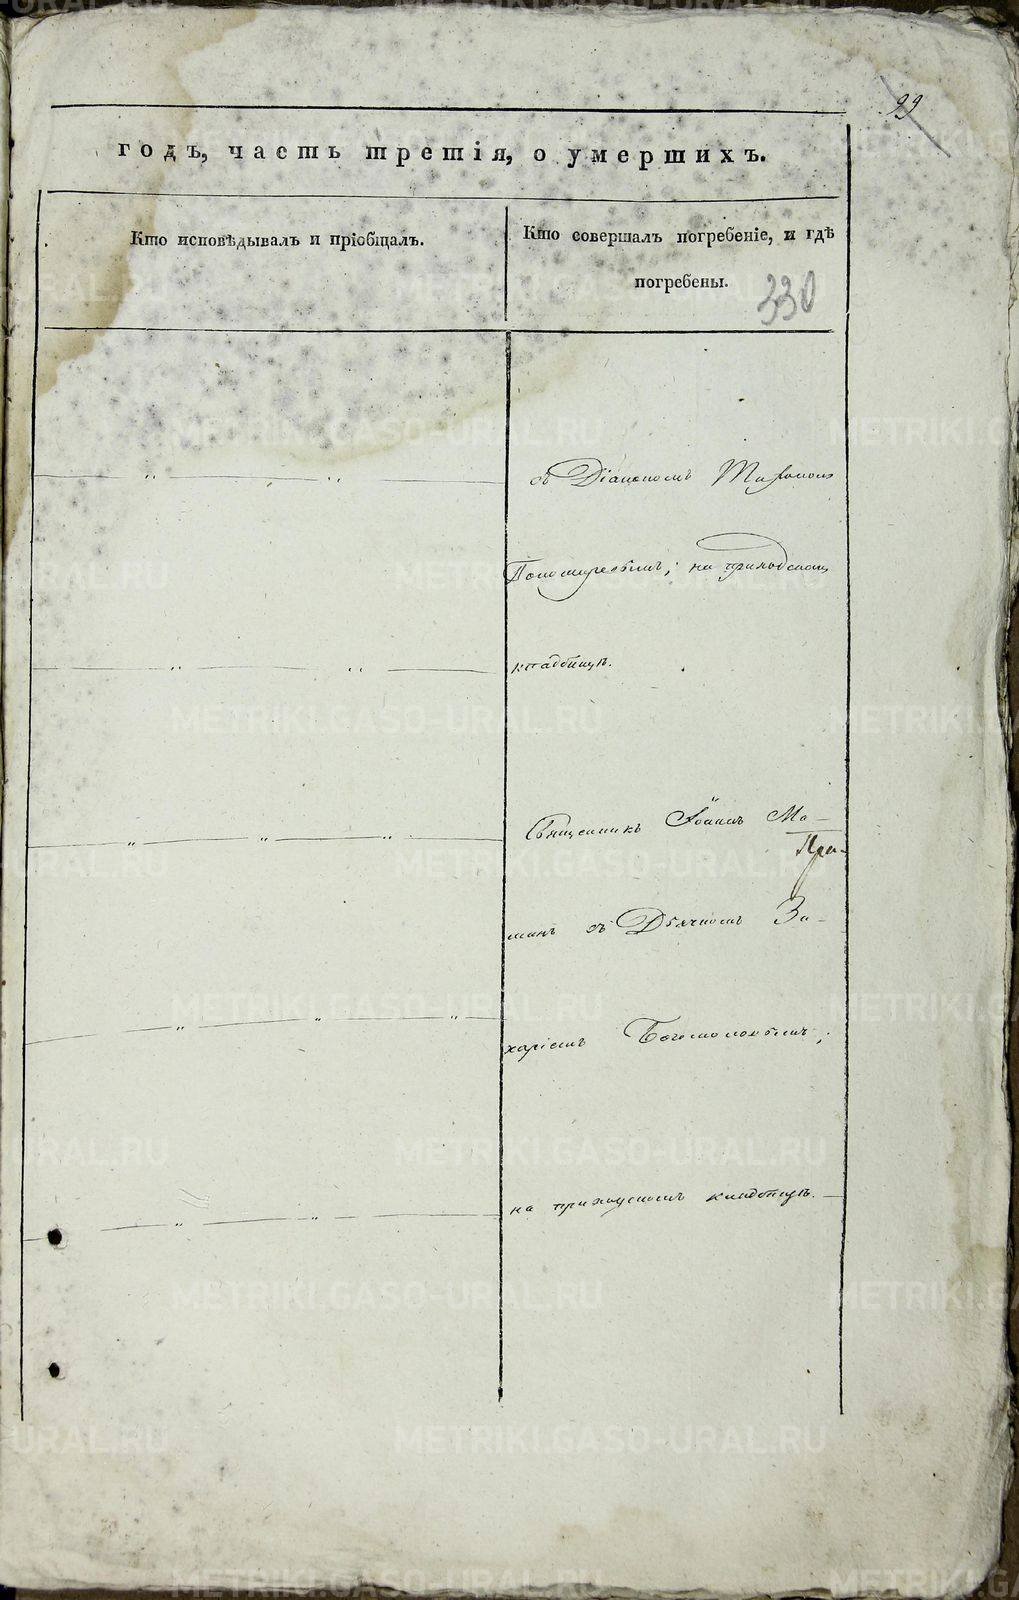 99
годъ, часть третія, о умершихъ.
Кто исповѣдывалъ и пріобщалъ.
Кто совершалъ погребеніе, и гдѣ
погребены.
330
съ Діакономъ
Пономаревымъ; на приходскомъ
кладбищѣ.
Священникъ Іоаннъ Ма-
минъ съ Дьячкомъ За-
харіемъ Богомоловымъ;
на приходскомъ кладбищѣ.
METRIKI.GASO-URAL.RU